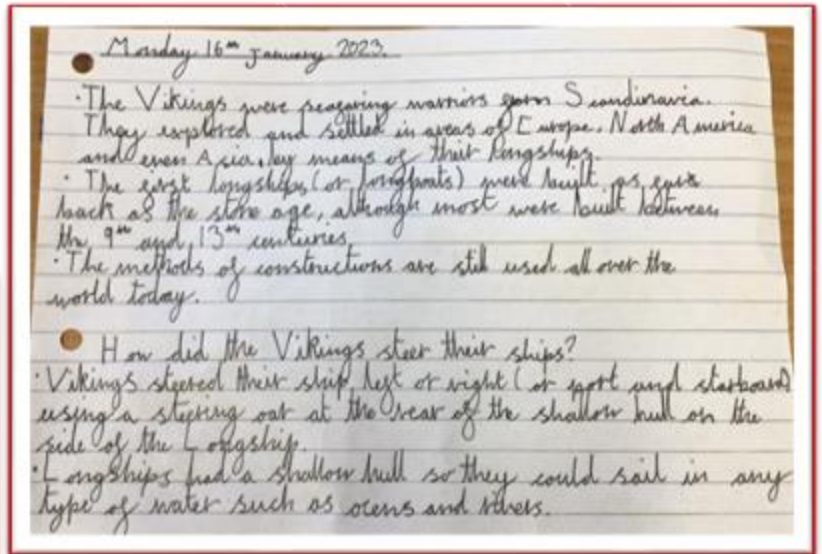 Monday 16th January 2023.
• The Vikings were seagaring warriors from Scandinavia.
They explored and settled in areas of Europe, North America
and even Asia, by means of their Longships.
• The first longships (or longboats) were built as far
back as the stone age, although most were built between
the 9th and 13th centuries.
• The methods of constructions are still used all over the
world today.
How did the Vikings steer their ships?
• Vikings steered their ship left or right (or port and starboard)
using a steering oar at the rear of the shallow hull on the
side of the Longship.
• Longships had a shallow hull so they could sail in any
type of water such as ocens and rivers.